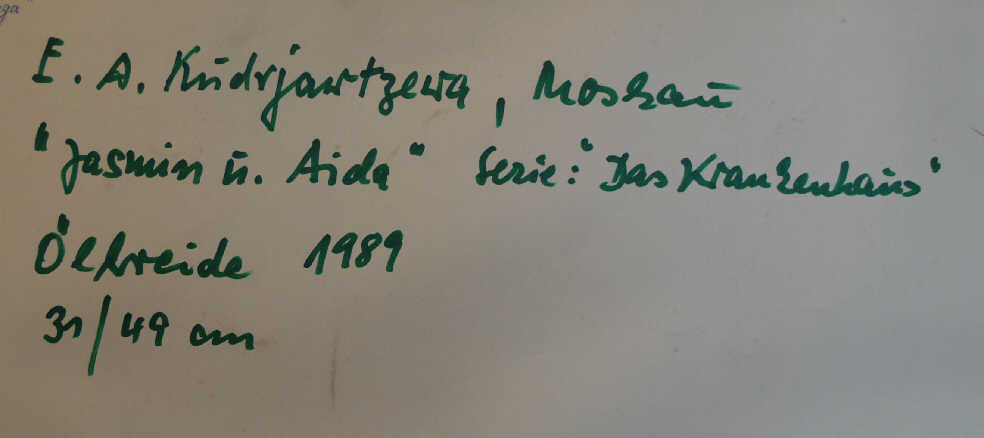 E. A. Kudrjawtzewa, Moskau
"Jasmin u. Aida" Serie: "Das Krankenhaus"
Ölkreide 1989
31/49 cm